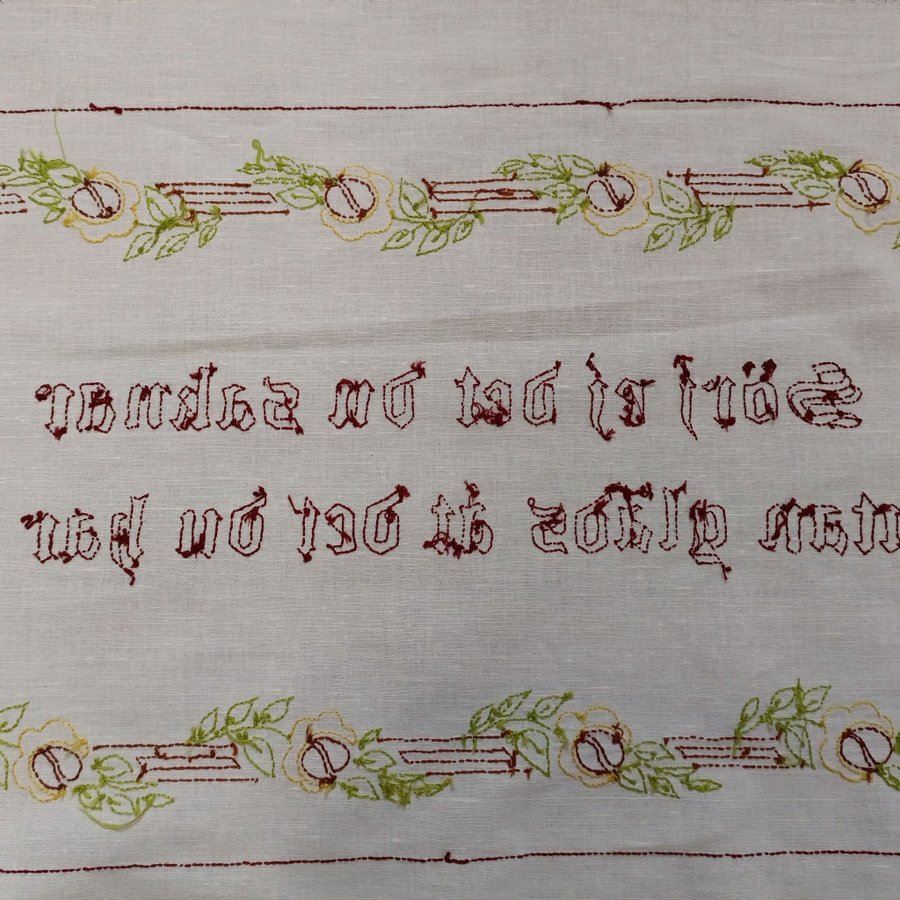 Sörj ej det du saknar
utan gläds åt det du har